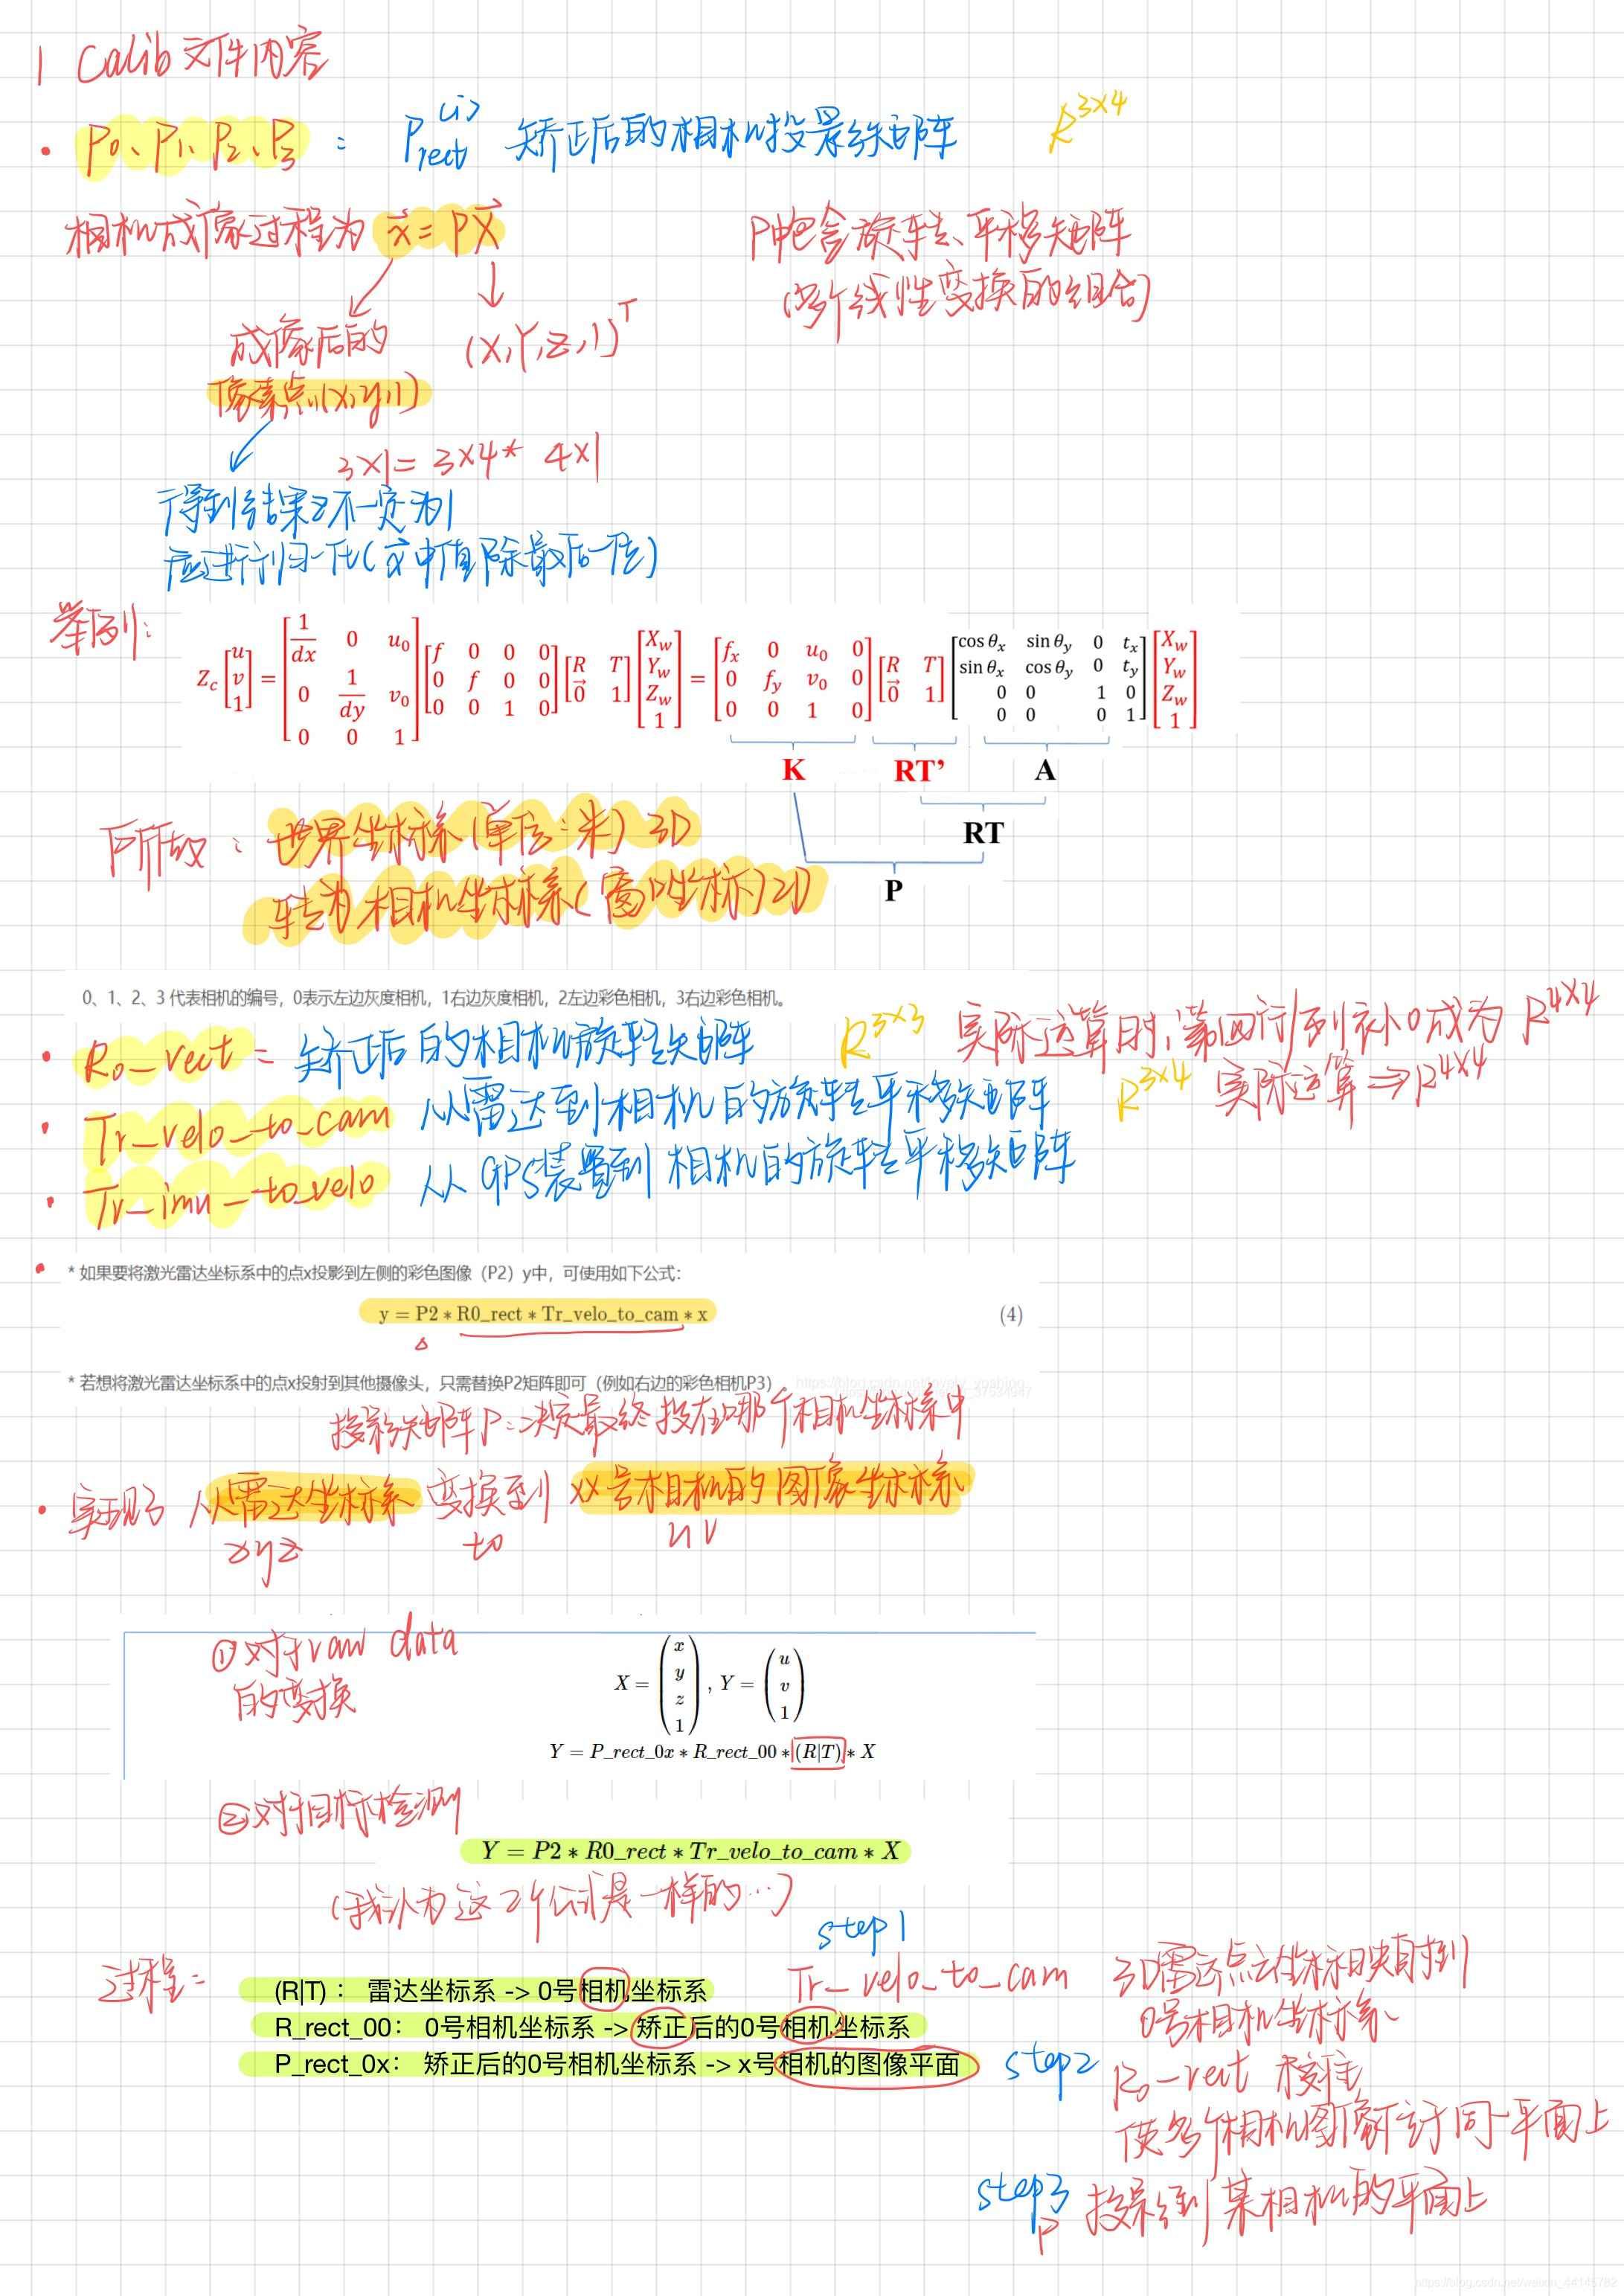 1 Calib 文件内容
· P0、P1、P2、P3 : P_rect^(i) 矫正后的相机投影矩阵 R^3×4
相机成像过程为 x⃗ = PX⃗ P中包含旋转、平移矩阵
(多个线性变换的组合)
成像后的 (X,Y,Z,1)^T
像素点(x,y,1)
3×1 = 3×4 * 4×1
得到结果z不一定为1
应进行归一化(x⃗中值除最后一位)
举例:
Z_c [u v 1] = [1/dx 0 u_0; 0 1/dy v_0; 0 0 1] [f 0 0 0; 0 f 0 0; 0 0 1 0] [R T; 0⃗ 1] [X_w Y_w Z_w 1] = [f_x 0 u_0 0; 0 f_y v_0 0; 0 0 1 0] [R T; 0⃗ 1] [cos θ_x sin θ_y 0 t_x; sin θ_x cos θ_y 0 t_y; 0 0 1 0; 0 0 0 1] [X_w Y_w Z_w 1]
K RT’ A
RT
P
所做: 世界坐标系(单位:米) 3D
转为相机坐标系(窗口坐标)2D
0、1、2、3 代表相机的编号，0表示左边灰度相机，1右边灰度相机，2左边彩色相机，3右边彩色相机。
· R0_rect = 矫正后的相机旋转矩阵 R^3×3 实际运算时,第四行/列补0成为 R^4×4
· Tr_velo_to_cam 从雷达到相机的旋转平移矩阵 R^3×4 实际运算⇒R^4×4
· Tr_imu_to_velo 从GPS装置到相机的旋转平移矩阵
· * 如果要将激光雷达坐标系中的点x投影到左侧的彩色图像（P2）y中，可使用如下公式：
y = P2 * R0_rect * Tr_velo_to_cam * x (4)
* 若想将激光雷达坐标系中的点x投射到其他摄像头，只需替换P2矩阵即可（例如右边的彩色相机P3）。
投影矩阵P:决定最终投在哪个相机坐标系中
· 实现了 从雷达坐标系 变换到 xx号相机的图像坐标系
xyz to uv
①对于raw data
的变换
X = (x y z 1), Y = (u v 1)
Y = P_rect_0x * R_rect_00 * (R|T) * X
②对于目标检测
Y = P2 * R0_rect * Tr_velo_to_cam * X
(我认为这2个公式是一样的…)
过程:
(R|T)： 雷达坐标系 -> 0号相机坐标系
R_rect_00： 0号相机坐标系 -> 矫正后的0号相机坐标系
P_rect_0x： 矫正后的0号相机坐标系 -> x号相机的图像平面
step1
Tr_velo_to_cam 3D雷达点云坐标映射到
0号相机坐标系
step2 R0_rect 校准
使多个相机图像位于同一平面上
step3
P 投影到某相机的平面上
https://blog.csdn.net/weixin_44145782